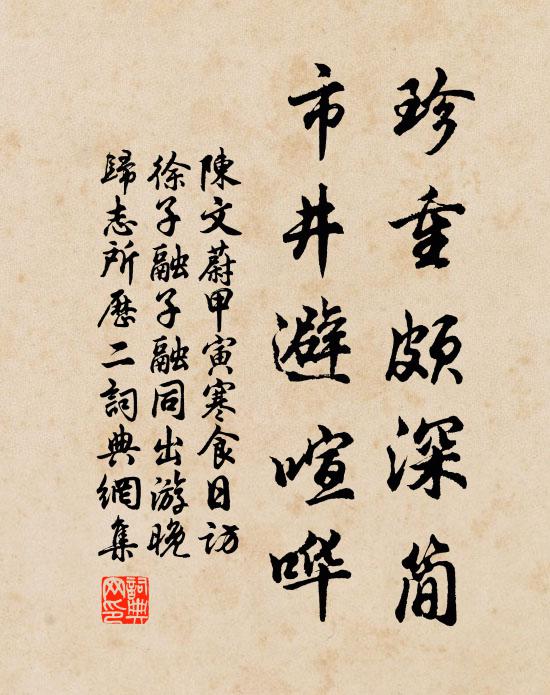 珍重頗深简
市井避喧哗
陳文蔚甲寅寒食日访
徐子融子融同出游晚
歸志所歷二詞典網集
詞典网印